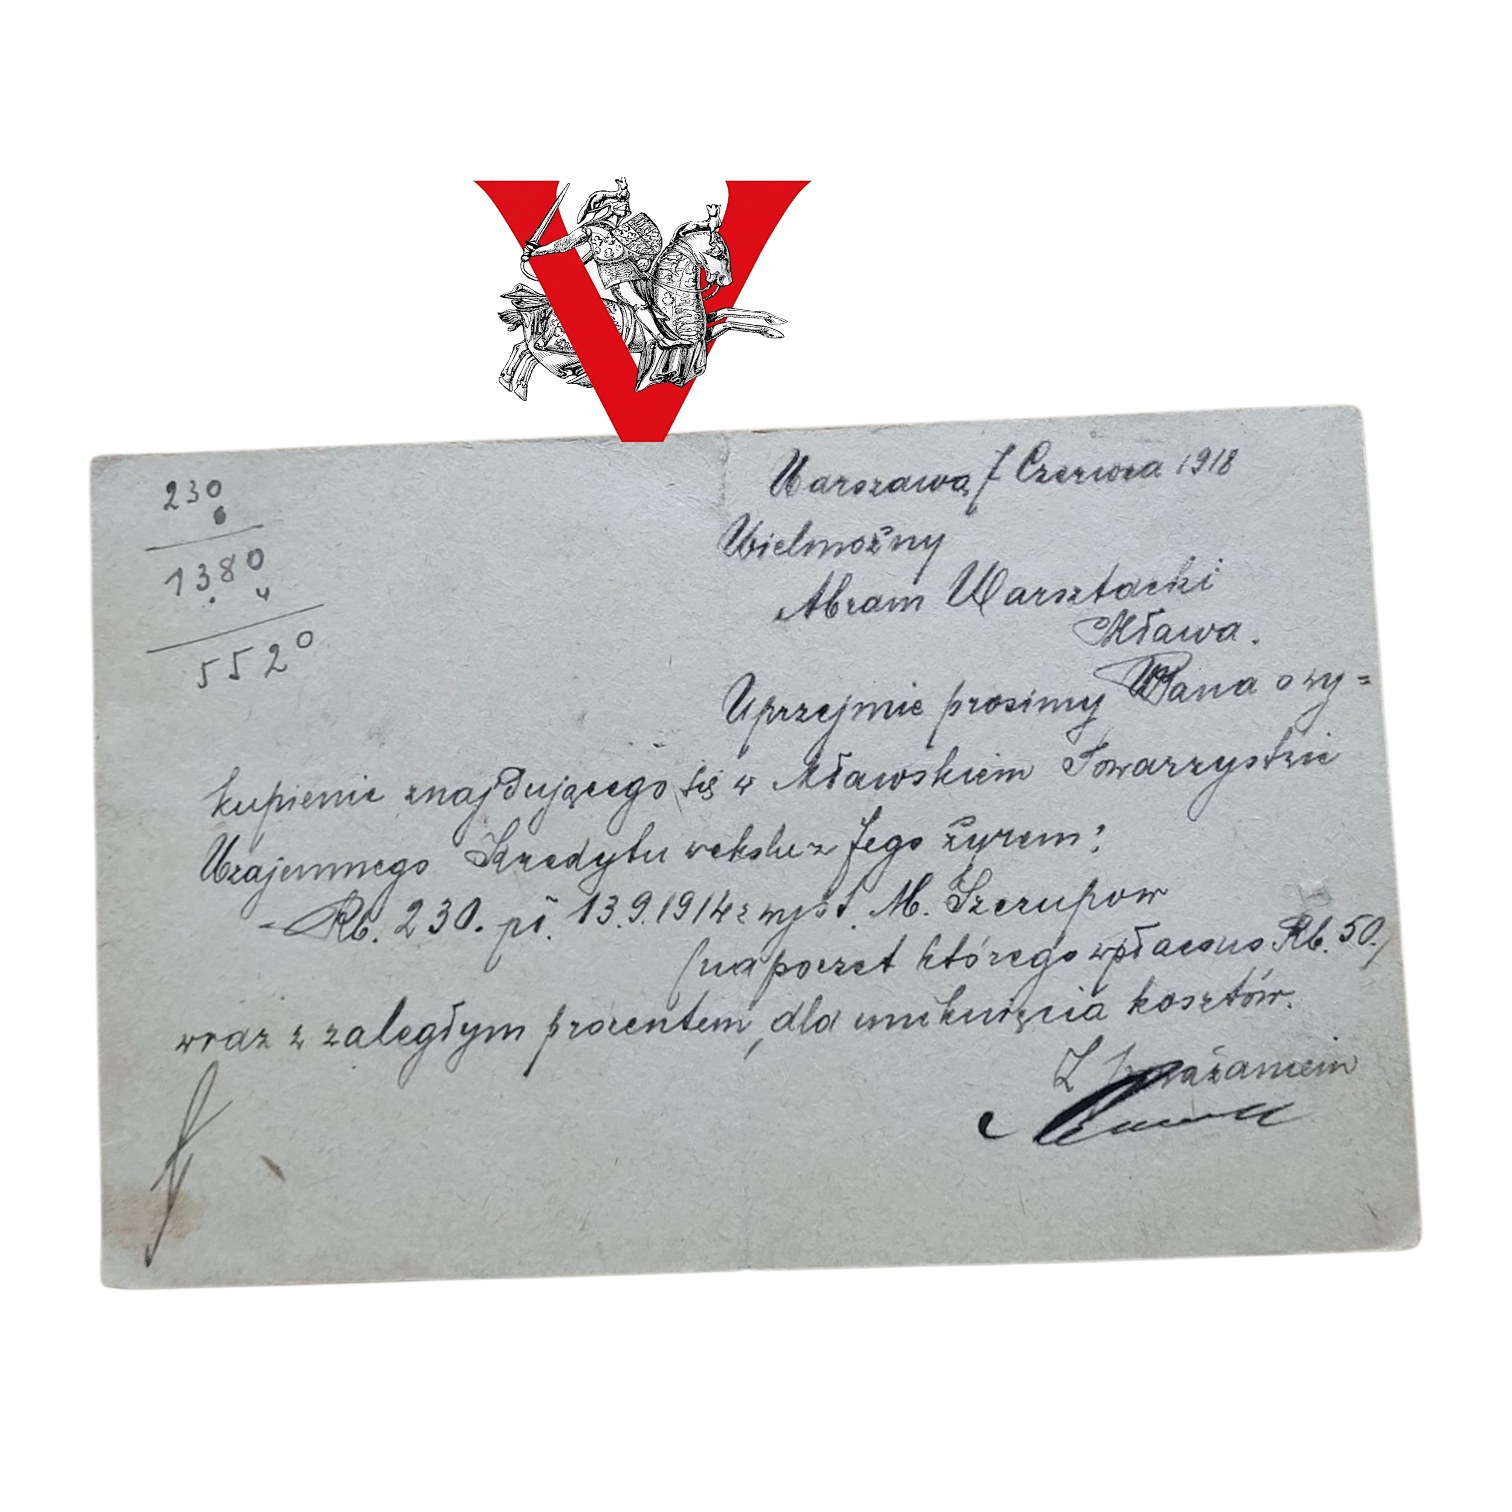 V
230
6
1380
4
5520
Warszawa, 7 Czerwca 1918
Wielmożny
Abram Warsztacki
Mława.
Uprzejmie prosimy Pana o wy=
kupienie znajdującego się w Mławskiem Towarzystwie
Wzajemnego Kredytu wekslu z Jego żyrem:
Rb. 230. pł. 13.9.1914 z wyst. M. Szczupow
(na poczet którego wpłacono Rb. 50.)
wraz z zaległym procentem, dla uniknięcia kosztów.
Z poważaniem